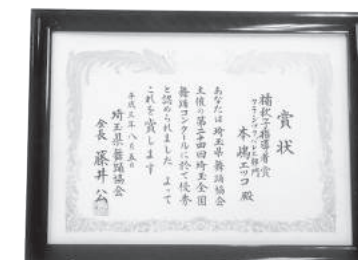 賞状
橘秋子指導者賞
クラシックバレエ部門
本嶋エツコ 殿
あなたは埼玉県舞踊協会
主催の第二十四回埼玉全国
舞踊コンクールに於て優秀
と認められました よって
これを賞します
平成三年八月五日
埼玉県舞踊協会
会長 藤井 公